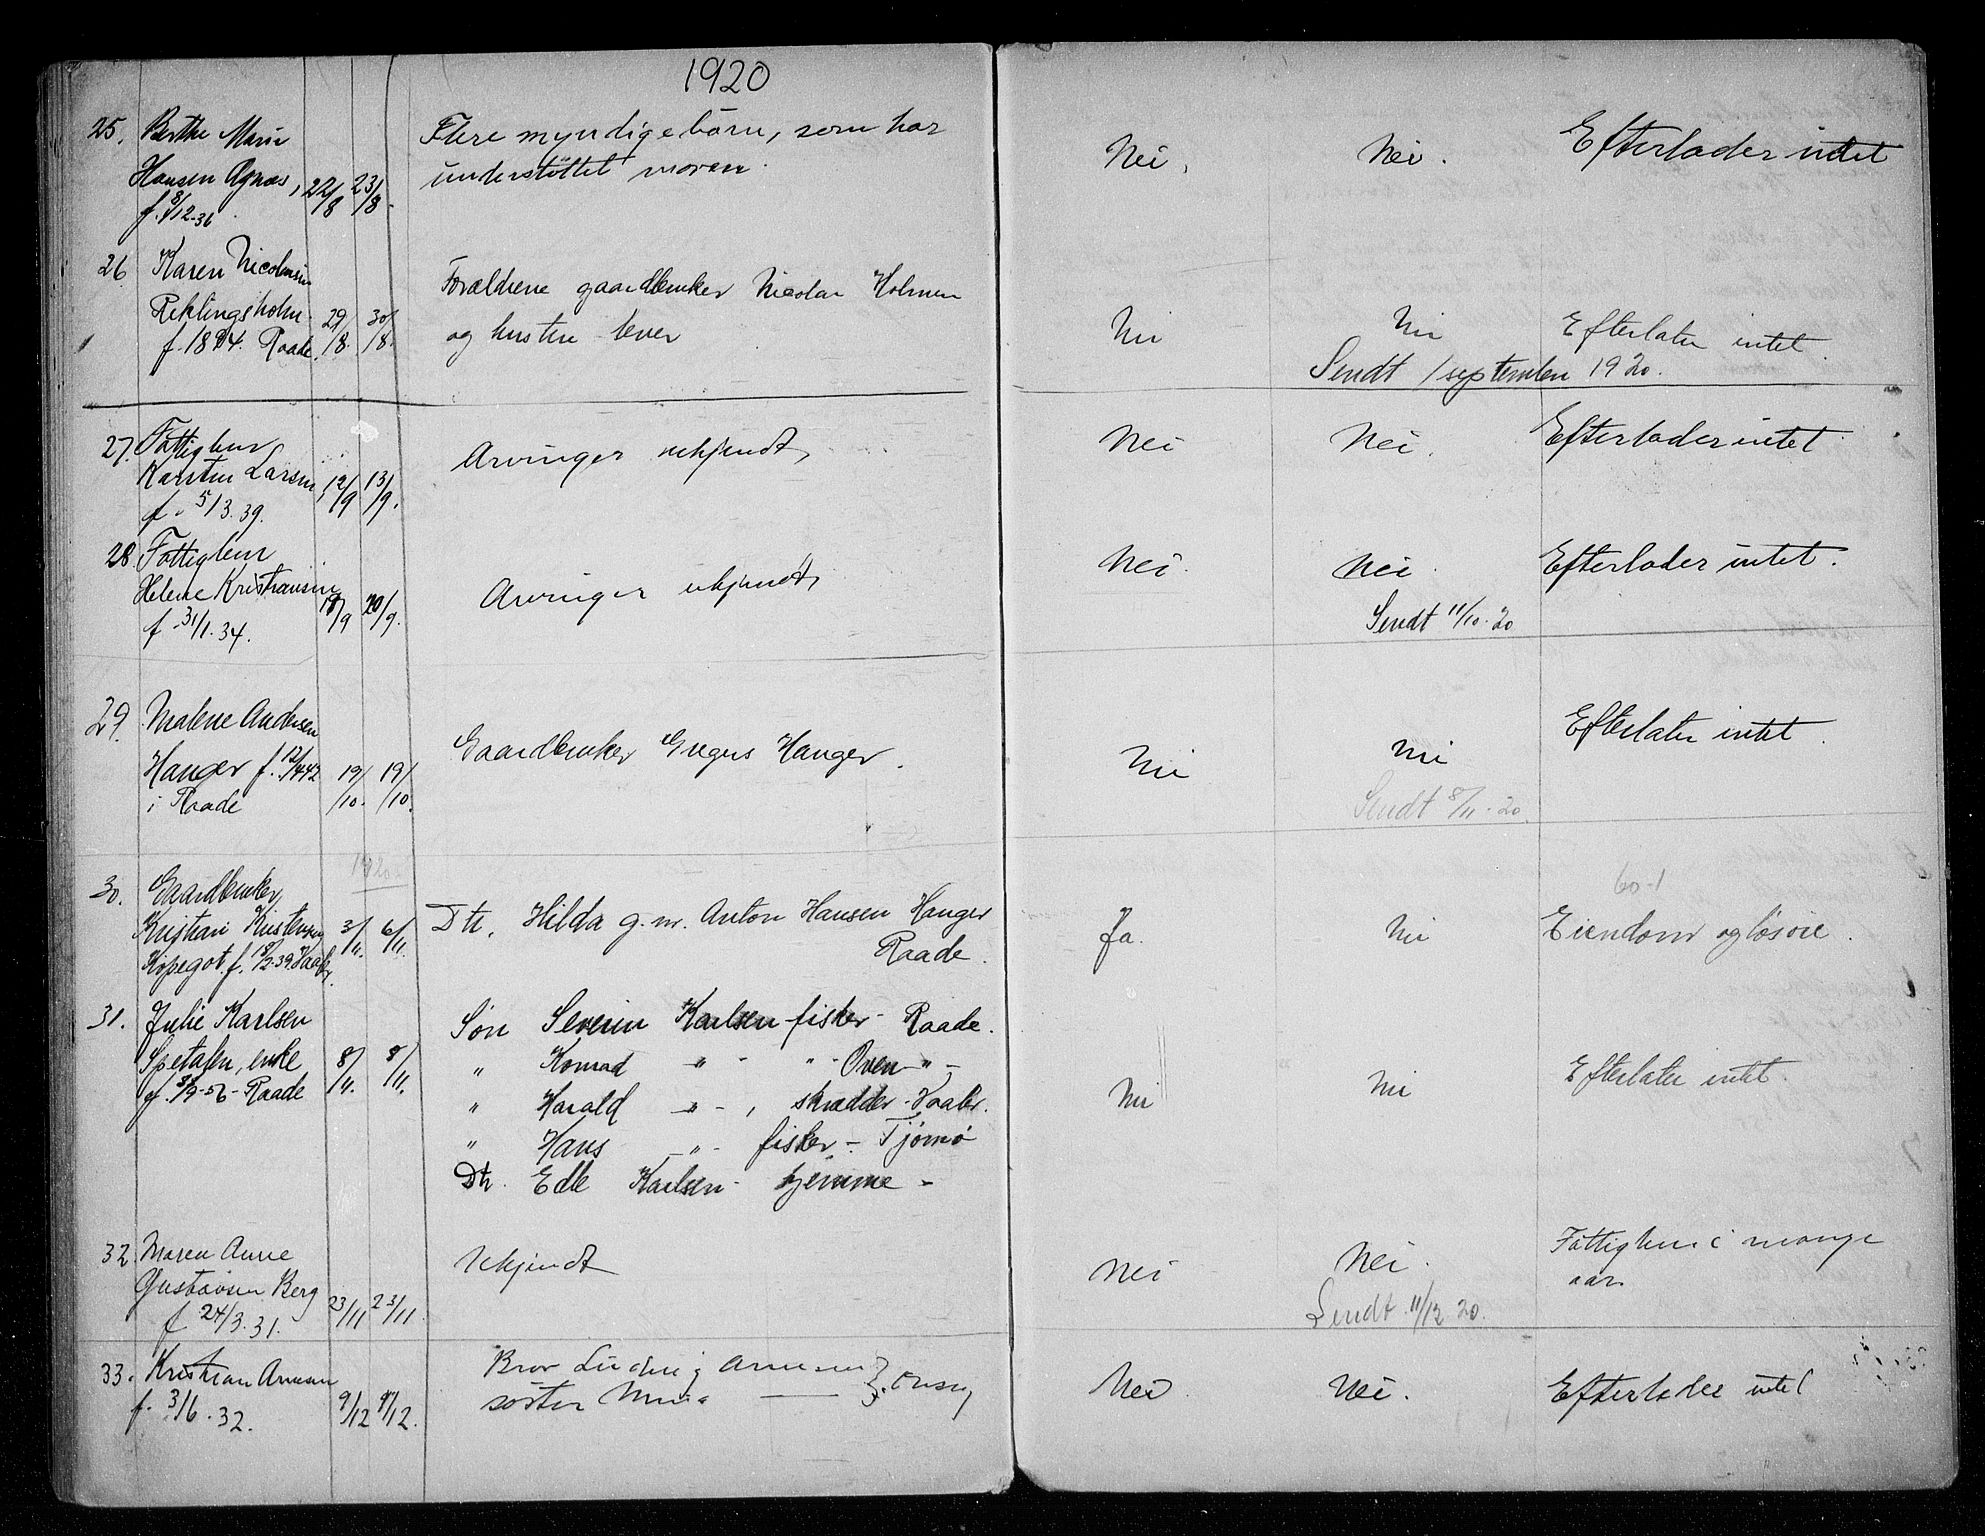 1920
25. Berthe Marie
Hansen Agnæs, 22/8 23/8.
f. 8/12-36.
Flere myndige børn, som har
understøttet moren.
Nei. Nei. Efterlader intet
26 Karen Nicoline
Reklingsholm 29/8. 30/8.
f. 1894. Raade.
Forældrene gaardbruker Nicolai Holmen
og hustru lever
Nei Nei Efterlater intet.
Sendt 1 september 1920.
27. Fattighem
Karsten Larsen, 12/9 13/9.
f. 5/3.39.
Arvinger ukjendt,
Nei Nei. Efterlader intet
28. Fattighem
Helene Kristiansen 19/9 20/9.
f. 31/1.34.
Arvinger ukjendt,
Nei. Nei. Efterlader intet.
Sendt 11/10.20
29. Malene Andersen
Hanger f. 12/4 42 19/10. 19/10.
i Raade
Gaardbruker Gregers Hanger.
Nei Nei Efterlater intet.
Sendt 8/11-20.
1920
60-1
30. Gaardbruker
Kristian Kristensen 3/11. 6/11.
Kopegot f. 18/2.39 Vaaler.
Dtr. Hilda g. m. Anton Hansen Hanger
Raade.
Ja. Nei Eiendom og løsøre.
31. Julie Karlsen
Spetalen, enke 8/11. 8/11.
f. 8/9-56 - Raade
Søn Severin Karlsen - fisker - Raade.
" Konrad " - " - Oven - " -
" Harald - " - , skrædder - Vaaler.
" Hans - " - fisker - Tjømø
Dtr. Edle Karlsen - hjemme -
Nei Nei Efterlater intet.
32. Maren Anne
Gustavsen Berg 23/11 23/11.
f 24/3.31.
Ukjendt
Nei Nei. Fattighem i mange
aar.
Sendt 11/12 20.
33. Kristian Arnesen
f. 3/6.32. 9/12 9/12.
Bror Ludvig Arnesen } Onsø
søster —
Nei. Nei. Efterlader intet